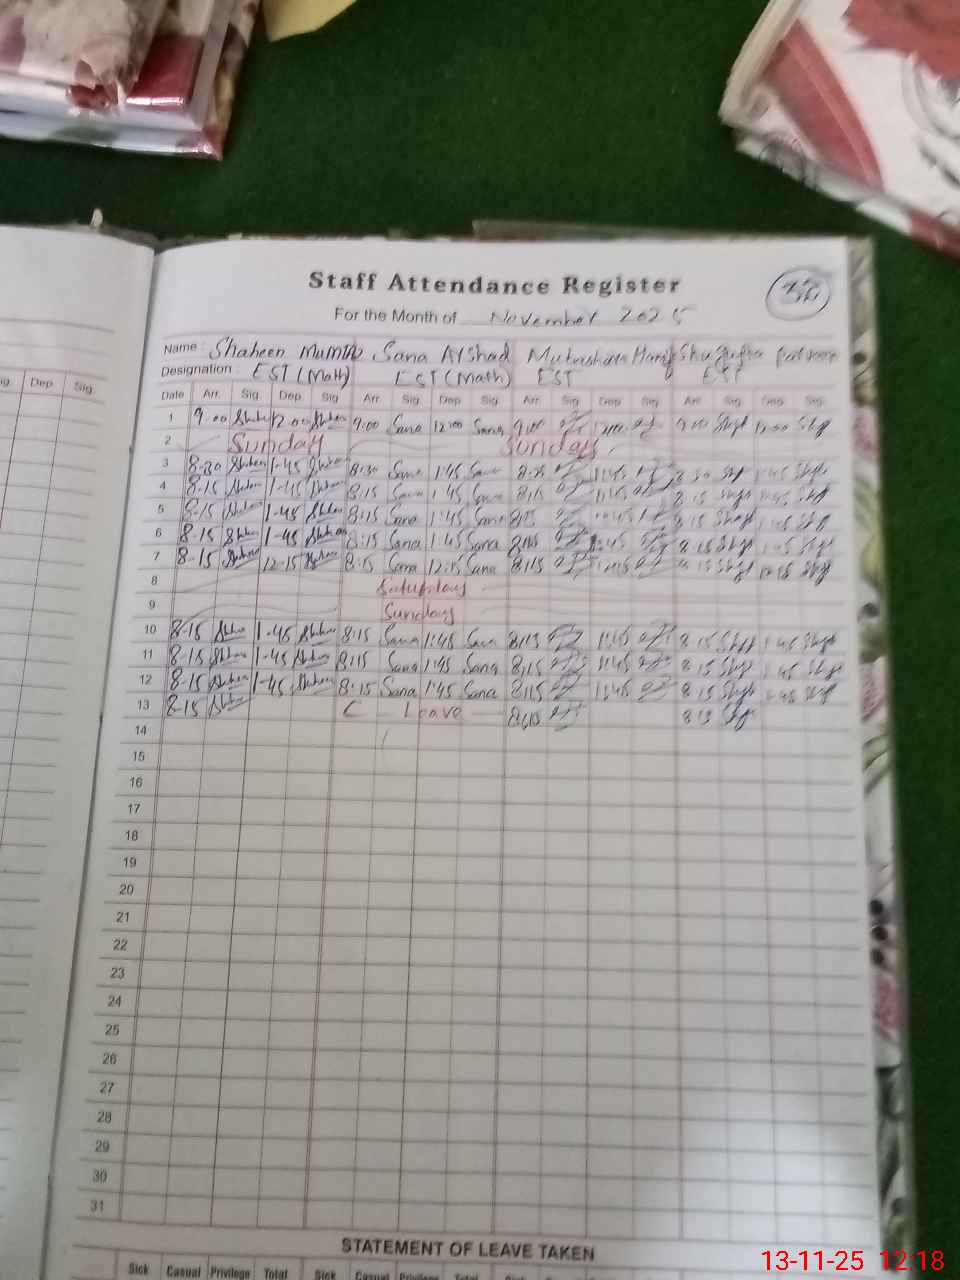 Staff Attendance Register
32
For the Month of November 2025
Name : Shaheen Sana Arshad
Designation : EST (Math) EST (Math) EST EST
ig. Dep. Sig.
Date Arr. Sig. Dep. Sig. Arr. Sig. Dep. Sig. Arr. Sig. Dep. Sig. Arr. Sig. Dep. Sig.
1 9-00 Shaheen 12 00 Shaheen 9:00 Sana 12:00 Sana 9:00 12:00 9 00 Shgf 12:00 Shgf
2 Sunday Sunday
3 8-30 Shaheen 1-45 Shaheen 8:30 Sana 1:45 Sana 8:30 Shgf 1:45 Shgf
4 8-15 Shaheen 1-45 Shaheen 8:15 Sana 1:45 Sana 8:15 8 15 Shgf 1:45 Shgf
5 8-15 Shaheen 1-45 Shaheen 8:15 Sana 1:45 Sana 8:15 8 15 Shgf 1:45 Shgf
6 8-15 Shaheen 1-45 Shaheen 8:15 Sana 1:45 Sana 8:15 8 15 Shgf 1:45 Shgf
7 8-15 Shaheen 12-15 Shaheen 8:15 Sana 12:15 Sana 8:15 12:15 8 15 Shgf 12:15 Shgf
8 Saturday
9 Sunday
10 8-15 Shaheen 1-45 Shaheen 8:15 Sana 1:45 Sana 8:15 1:45 8 15 Shgf 1:45 Shgf
11 8-15 Shaheen 1-45 Shaheen 8:15 Sana 1:45 Sana 8:15 1:45 8 15 Shgf 1:45 Shgf
12 8-15 Shaheen 1-45 Shaheen 8:15 Sana 1:45 Sana 8:15 1:45 8 15 Shgf 1:45 Shgf
13 8-15 Shaheen C Leave 8:15 8 15 Shgf
14
15
16
17
18
19
20
21
22
23
24
25
26
27
28
29
30
31
STATEMENT OF LEAVE TAKEN
Sick Casual Privilege Total Sick Casual Privilege Total Sick Casual
13-11-25 12:18